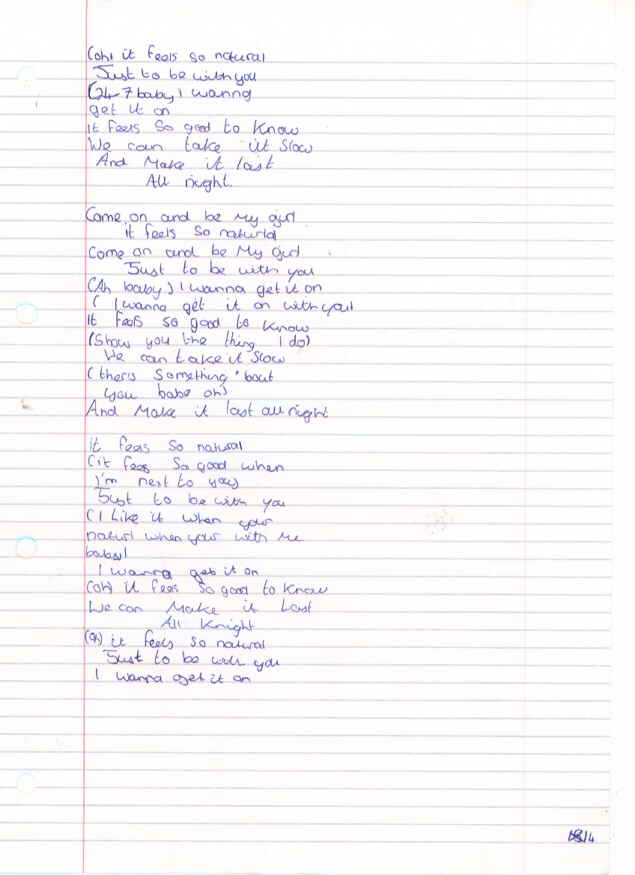 (oh) it feels so natural
Just to be with you
(24-7 baby) I wanna
get it on
it feels so good to know
We can take it slow
And Make it last
All night.
Come on and be My girl
it feels so natural
Come on and be My girl
Just to be with you
(Ah baby) I wanna get it on
( I wanna get it on with you)
It feels so good to know
(Show you the thing I do)
We can take it slow
(thers Something 'bout
you babe oh)
And Make it last all night
it feels so natural
(it fees so good when
I'm next to you)
Just to be with you
(I Like it when your
naturl when your with me
baby)
I wanna get it on
(oh) it fees so good to know
We can Make it Last
All Knight
(oh) it feels so natural
Just to be with you
I wanna get it on